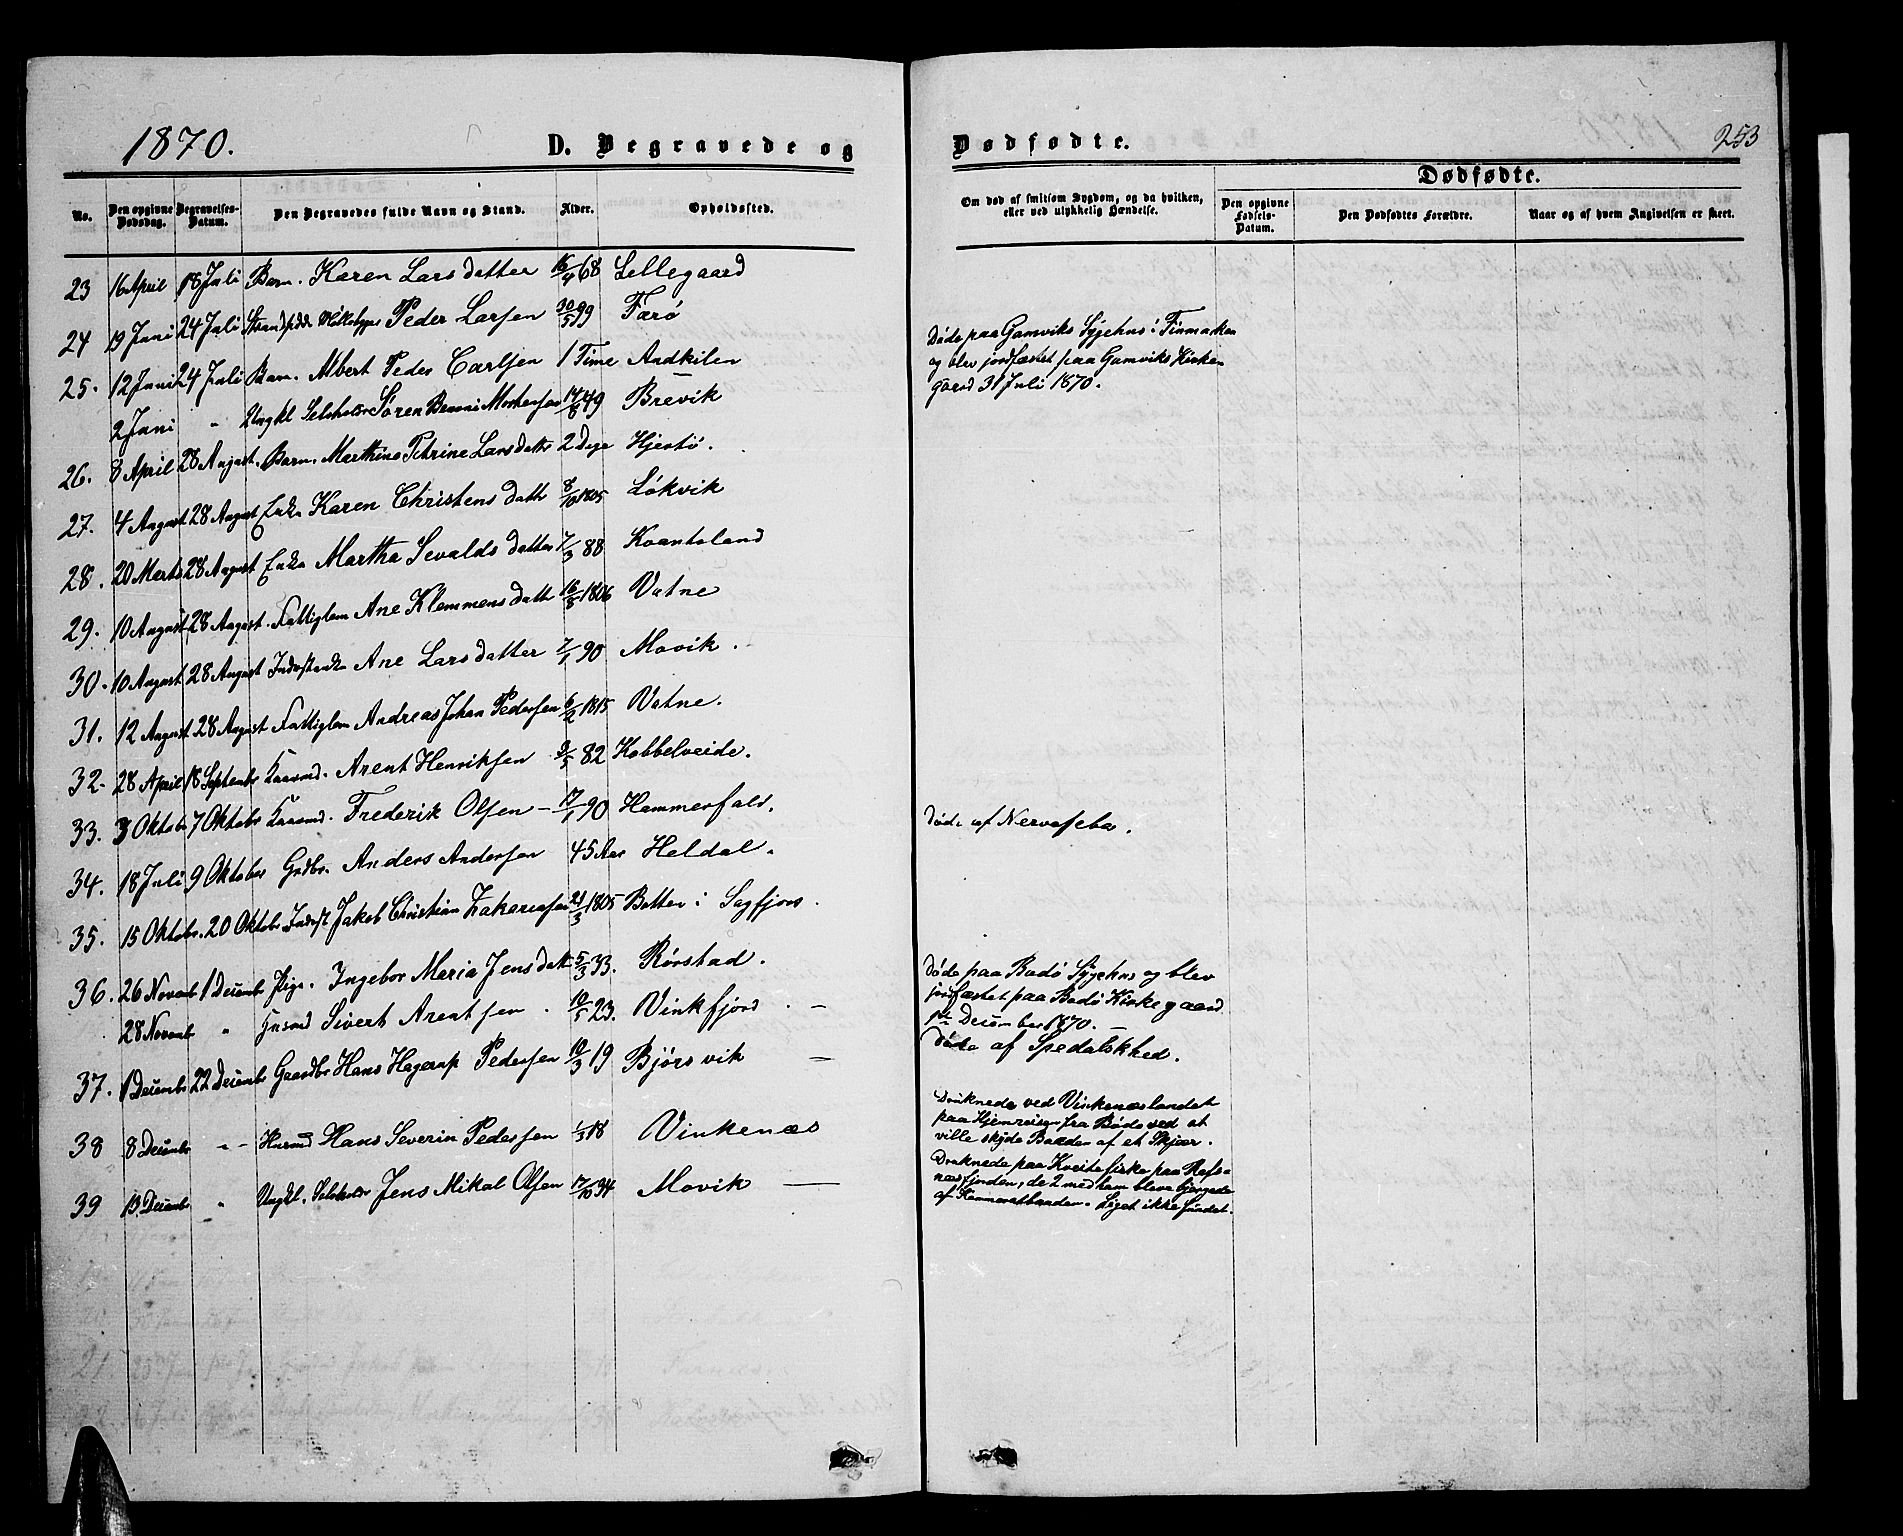 1870.
D. Begravede og
Dødfødte.
253
Dødfødte.
No.
Den opgivne Dødsdag.
Begravelses-Datum.
Den Begravedes fulde Navn og Stand.
Alder.
Opholdssted.
Om død af smitsom Sygdom, og da hvilken, eller ved ulykkelig Hændelse.
Den opgivne Fødsels-Datum.
Den Dødfødtes Forældre.
Naar og af hvem Angivelsen er skeet.
23 16 April 18 Juli Barn. Karen Larsdatter 16/4 68 Lillegaard
24 19 Juni 24 Juli Peder Larsen 30/5 99 Færø
25. 12 Juni 24 Juli Barn. Albert Peder Carlsen 1 Time Andkilen
2 Juni " Ungkl Selvholder Søren Benoni Mortensen 14/8 49 Brevik
Døde paa Gamviks Sygehus i Finmarken
og blev jordfæstet paa Gamviks Kirke-
gaard 31 Juli 1870.
26. 8 April 28 August. Barn. Marthine Petrine Larsdatter 2 Dage Hjertø.
27. 4 August 28 August Enke Karen Christensdatt 8/10 1805 Løkvik
28. 20 Marts 28 August Enke Martha Sevaldsdatter 7/3 88 Kvantoland
29. 10 August 28 August. Fattiglem Ane Klemmensdatt 16/8 1806 Vatne
30. 10 August 28 August Inderstenke Ane Larsdatter 7/1 90 Movik.
31. 12 August 28 August Fattiglem Andreas Johan Pedersen 6/2 1815 Vatne.
32. 28 April 18 Septembr Kaarmd. Arent Henriksen 3/5 82 Kobbelveide.
33. 3 Oktobr 7 Oktobr Kaarmd. Frederik Olsen - 17/1 90 Hammerfald.
Døde af Nervefeber.
34. 18 Juli 9 Oktober Grdbr. Anders Andersen 45 Aar Heldal.
35. 15 Oktobr. 20 Oktobr Inderst Jakob Christian Zakariasen 21/3 1805 Botten i Sagfjord.
36. 26 Novembr 1 Decembr Pige. Ingebor Maria Jensdatt 5/3 33. Rørstad.
Døde paa Bodø Sygehus og blev
jordfæstet paa Bodø Kirkegaard
1ste December 1870. —
28 Novembr " Husmd Sivert Arentsen. 10/5 23. Vinkfjord. —
Døde af Spedalskhed.
37. 1 Decembr 22 Decembr Gaardbr Hans Hagerup Pedersen 10/3 19 Bjørsvik —
38 8 Decembr " Husmd Hans Severin Pedersen 1/3 18 Vinkenæs
Druknede ved Vinkenæslandet
paa Hjemreisen fra Bodø ved at
ville skyde Baaden af et Skjær.
39 13. Decembr " Ungkl. Selvholder Jens Mikal Olsen 17/10 34 Movik —
Druknede paa Kveitefiske paa Refs-
næsfjorden, de 2 med ham bleve bjergede
af Kammeratbaaden. Liget ikke fundet.